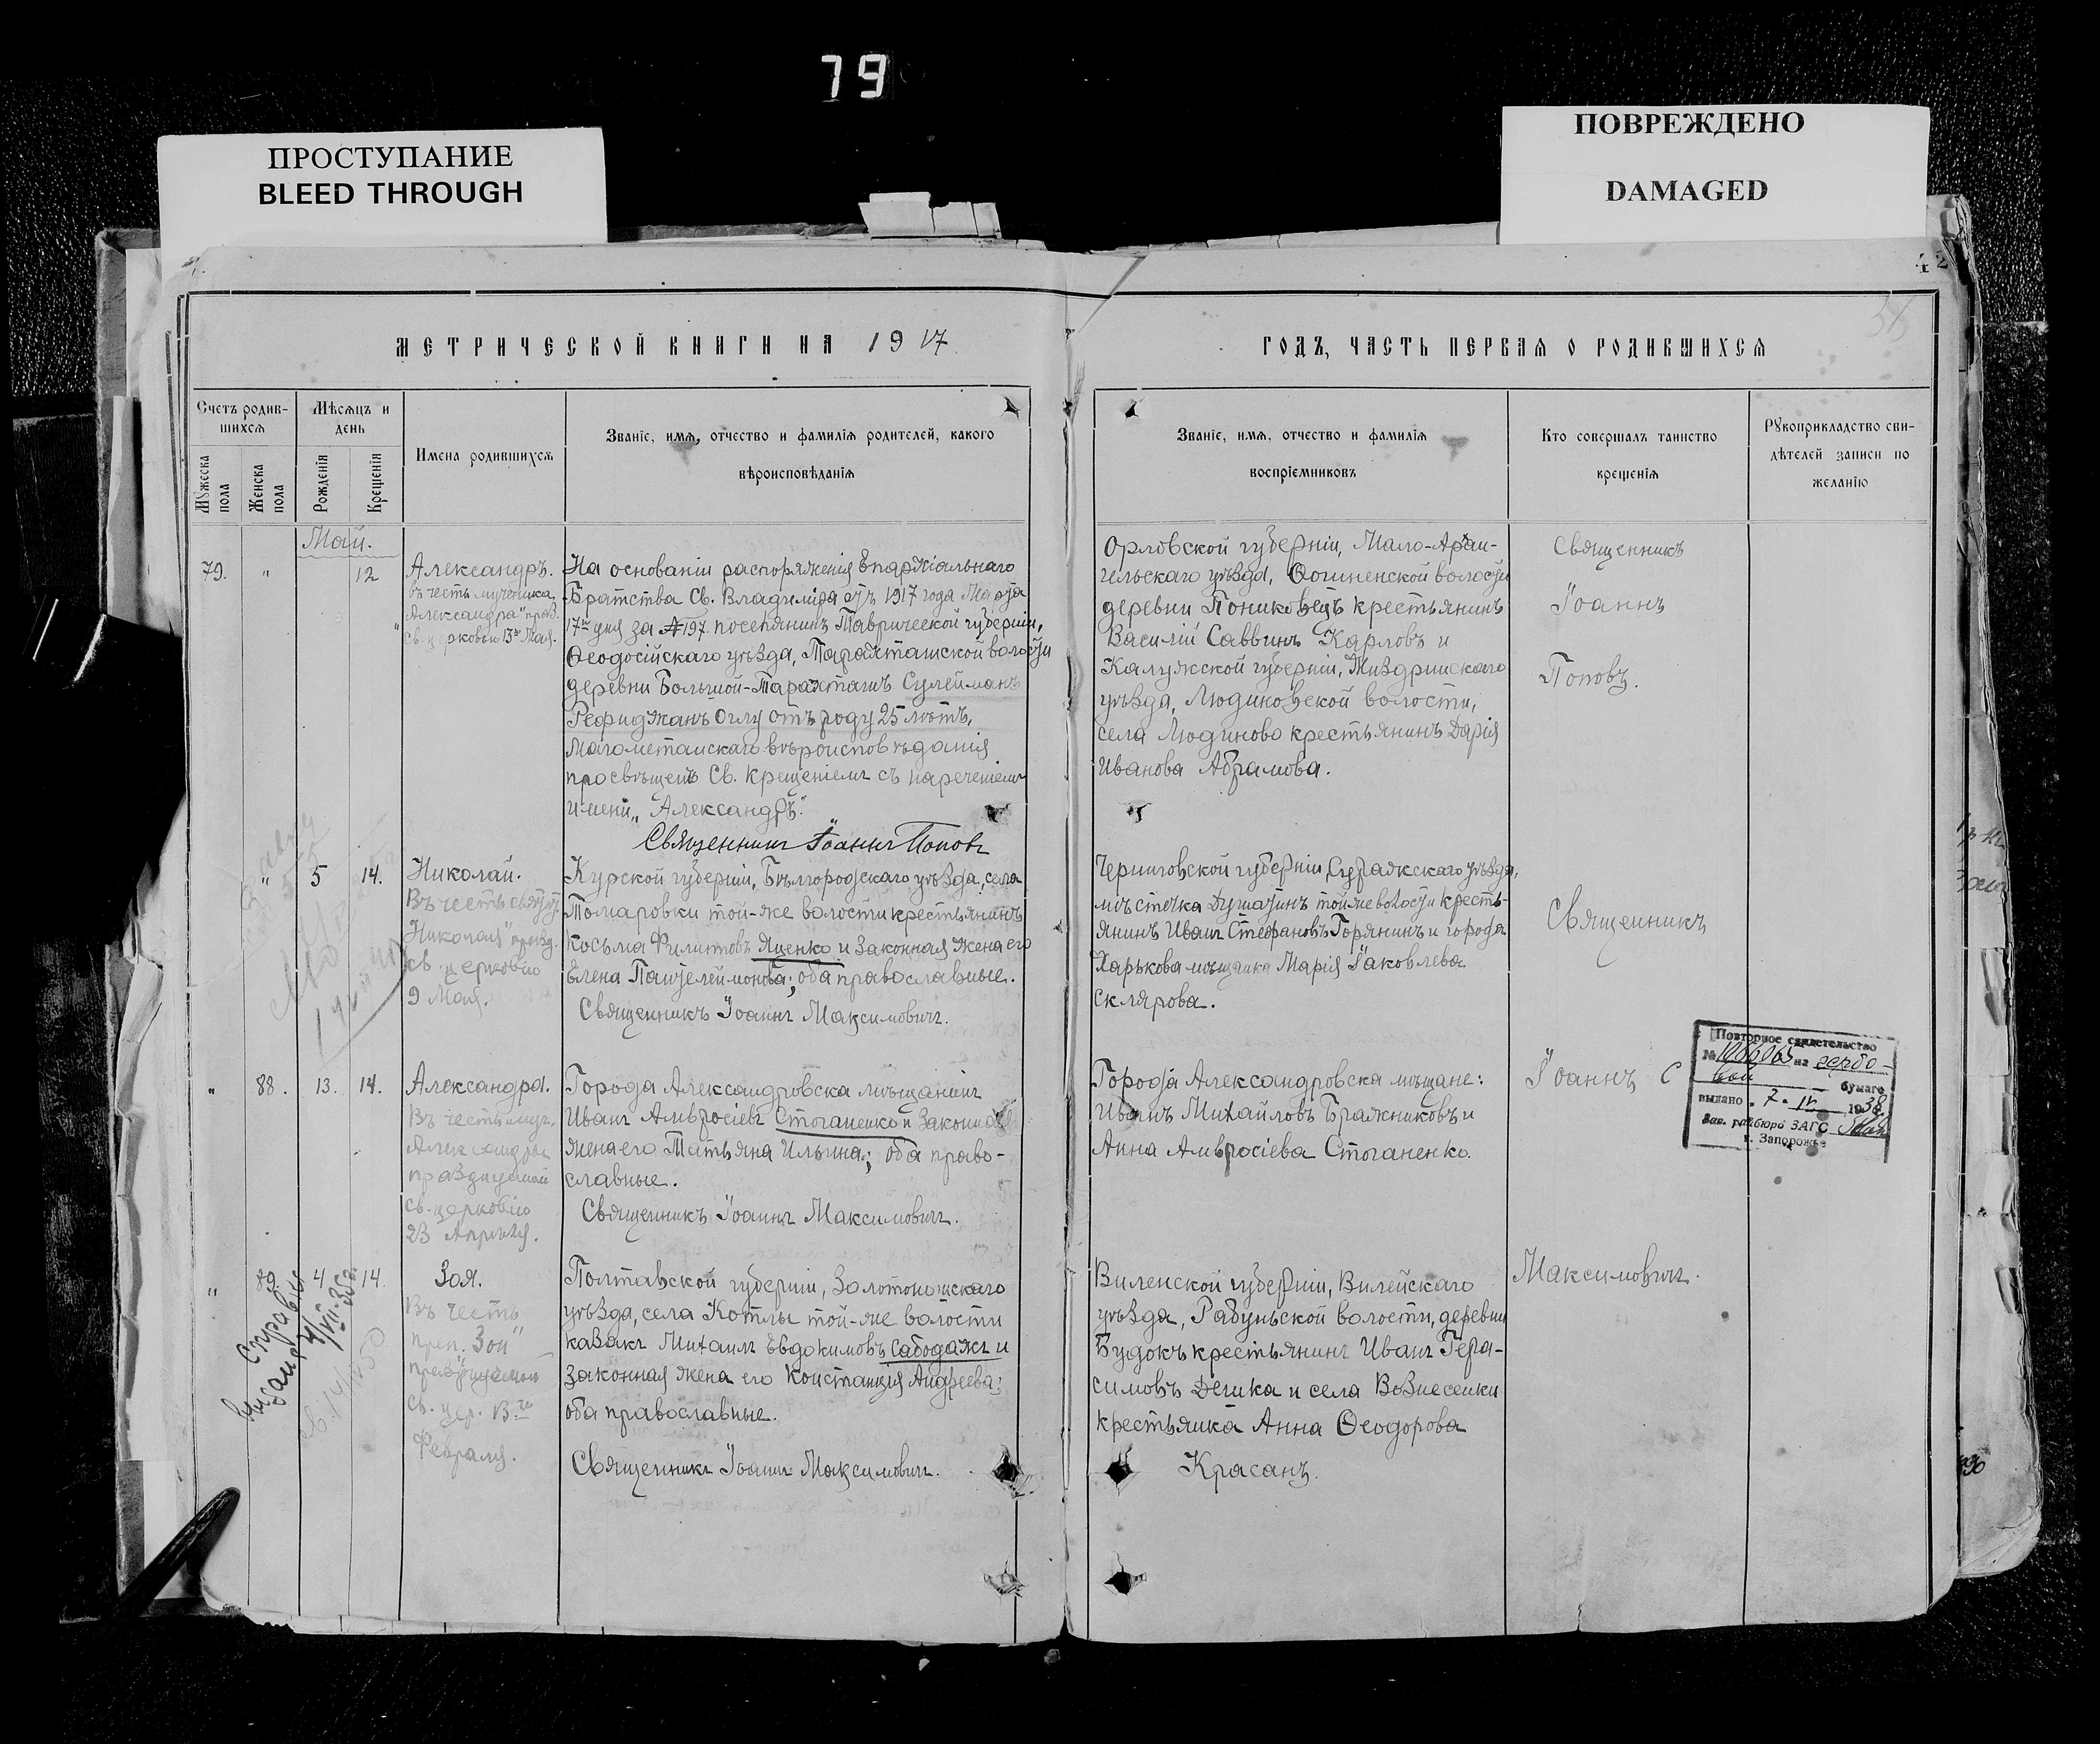 79
ПРОСТУПАНИЕ
BLEED THROUGH
ПОВРЕЖДЕНО
DAMAGED
42
МЕТРИЧЕСКОЙ КНИГИ НА 1917
Счетъ родив-
шихся
Мѣсяцъ и
день
Имена родившихся
Званіе, имя, отчество и фамилія родителей, какого
вѣроисповѣданія
Мужеска
пола
Женска
пола
Рожденія
Крещенія
Май.
79.
"
12
Александръ.
въ честь мученика
"Александра" празд.
св. церковью 13го Мая.
На основаніи распоряженія Епархіальнаго
Братства Св. Владиміра отъ 1917 года Марта
17го дня за №197. поселянинъ Таврической губерніи,
Ѳеодосійскаго уѣзда, Таракташской волости
деревни Большой-Таракташъ Сулейманъ
Рефиджанъ Оглу отъ роду 25 лѣтъ,
магометанскаго вѣроисповѣданія
просвѣщенъ Св. Крещеніемъ съ нареченіемъ
имени „Александръ".
Священникъ Іоаннъ Поповъ
"
5
14.
Николай.
Въ честь святит.
Николая" празд.
св. церковію
9 Мая.
Курской губерніи, Бѣлгородскаго уѣзда, села
Томаровки той-же волости крестьянинъ
Косьма Филиповъ Яценко и законная жена его
Елена Пантелеймонова; оба православные.
Священникъ Іоаннъ Максимовичъ.
"
88.
13.
14.
Александра.
Въ честь муч.
Александры
празднуемой
св. церковію
23 Апрѣля.
Города Александровска мѣщанинъ
Иванъ Амвросіевъ Стоганенко и законная
жена его Татьяна Ильина; оба право-
славные.
Священникъ Іоаннъ Максимовичъ.
"
89.
4
14.
Зоя.
Въ честь
преп. Зои"
празднуемой
св. цер. 13го
Февраля.
Полтавской губерніи, Золотоношскаго
уѣзда, села Котлы той-же волости
казакъ Михаилъ Евдокимовъ Сабодажъ и
законная жена его Констанція Андреева;
оба православные.
Священникъ Іоаннъ Максимовичъ.
ГОДЪ, ЧАСТЬ ПЕРВАЯ О РОДИВШИХСЯ
Званіе, имя, отчество и фамилія
воспріемниковъ
Кто совершалъ таинство
крещенія
Рукоприкладство сви-
дѣтелей записи по
желанію
Орловской губерніи, Мало-Архан-
гельскаго уѣзда, волости
деревни Пониковецъ крестьянинъ
Василій Саввинъ Карловъ и
Калужской губерніи, Жиздринскаго
уѣзда, Людиновской волости,
села Людиново крестьянинъ Дарія
Иванова Абрамова.
Священникъ
Іоаннъ
Поповъ.
Черниговской губерніи, Суражскаго уѣзда,
мѣстечка Душатинъ той же волости кресть-
янинъ Иванъ Стефановъ Горянинъ и города
Харькова мѣщанка Марія Іаковлева
Склярова.
Священникъ
Города Александровска мѣщане:
Иванъ Михайловъ Бражниковъ и
Анна Амвросіева Стоганенко.
Іоаннъ С
Повторное свидетельство
№ на гербо-
вой бумаге
выдано „7" IV 1938
Зав. райбюро ЗАГС
г. Запорожье
Виленской губерніи, Вилейскаго
уѣзда, волости, деревни
Будокъ крестьянинъ Иванъ Гера-
симовъ Дешка и села Вознесенки
крестьянка Анна Ѳеодорова
Красанъ.
Максимовичъ.